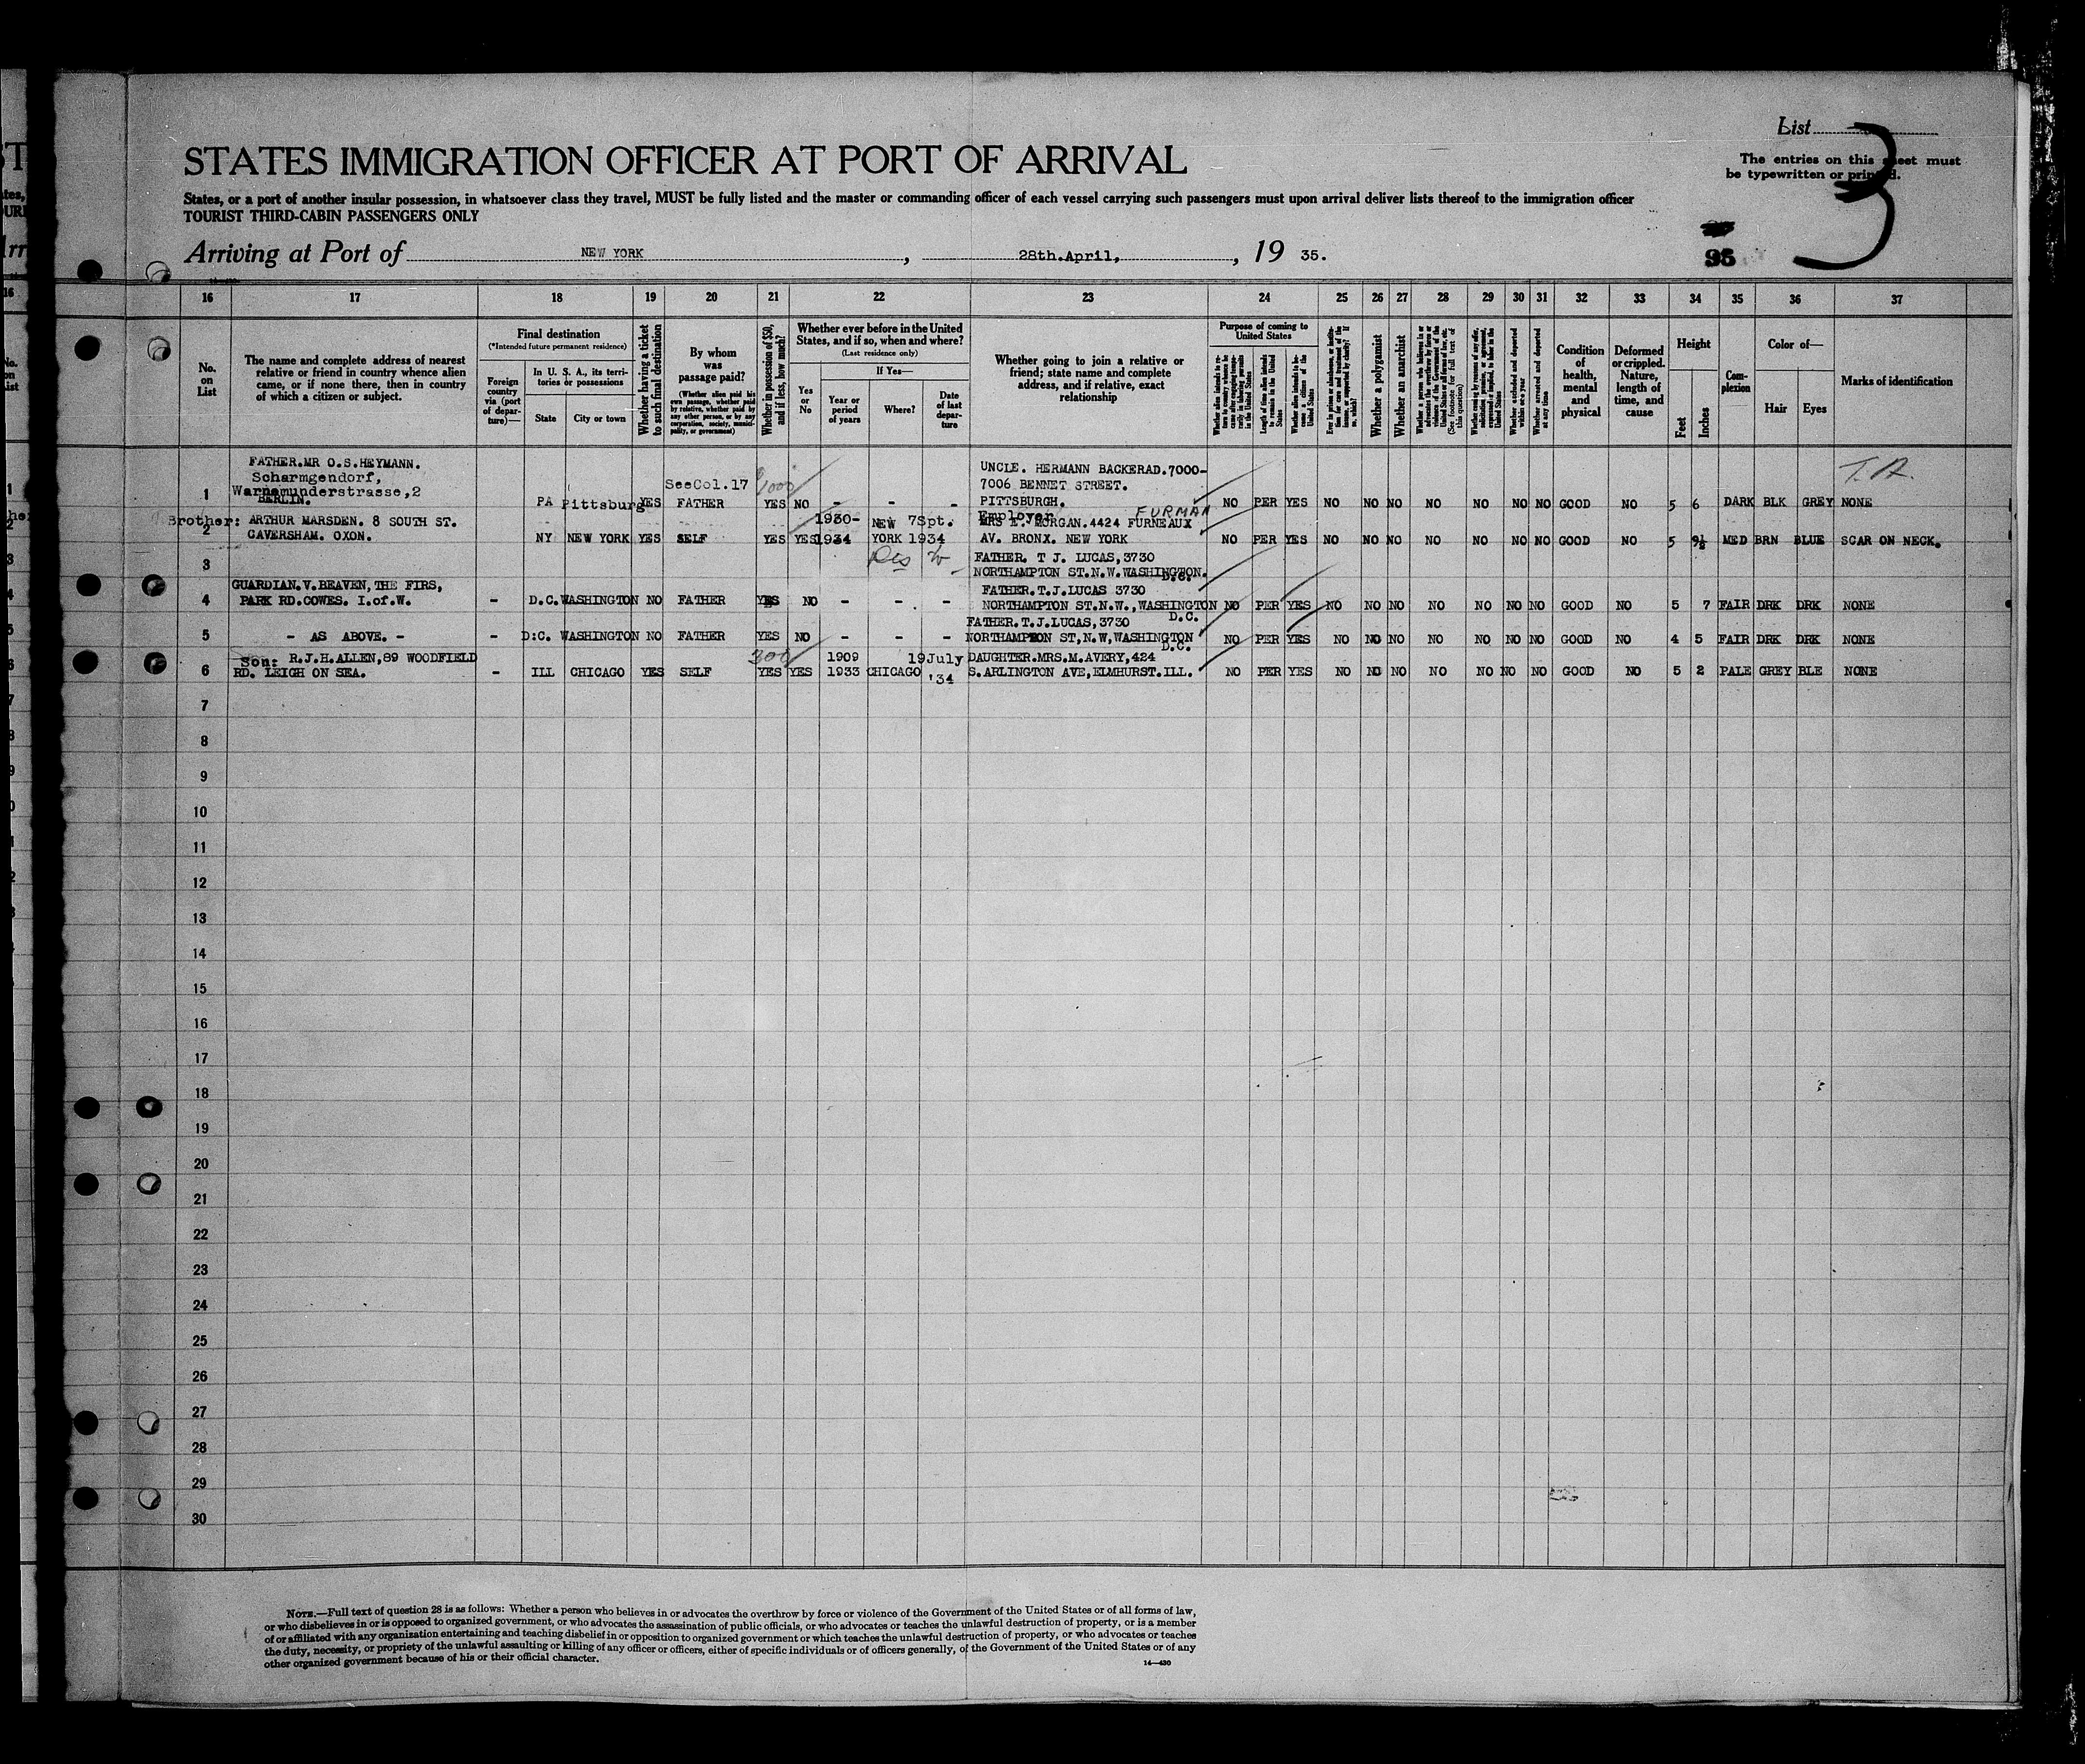 List 3
STATES IMMIGRATION OFFICER AT PORT OF ARRIVAL
The entries on this sheet must
be typewritten or printed.
States, or a port of another insular possession, in whatsoever class they travel, MUST be fully listed and the master or commanding officer of each vessel carrying such passengers must upon arrival deliver lists thereof to the immigration officer
TOURIST THIRD-CABIN PASSENGERS ONLY
95
Arriving at Port of NEW YORK, 28th.April, , 19 35.
16 17 18 19 20 21 22 23 24 25 26 27 28 29 30 31 32 33 34 35 36 37
No. on List
The name and complete address of nearest
relative or friend in country whence alien
came, or if none there, then in country
of which a citizen or subject.
Final destination
(*Intended future permanent residence)
Foreign country via (port of departure)—
In U. S. A., its territories or possessions
State
City or town
Whether having a ticket to such final destination
By whom was passage paid?
(Whether alien paid his own passage, whether paid by relative, whether paid by any other person, or by any corporation, society, municipality, or government)
Whether in possession of $50, and if less, how much?
Whether ever before in the United
States, and if so, when and where?
(Last residence only)
Yes or No
If Yes—
Year or period of years
Where?
Date of last departure
Whether going to join a relative or
friend; state name and complete
address, and if relative, exact
relationship
Purpose of coming to United States
Length of time alien intends to remain in the United States
Whether alien intends to become a citizen of the United States
Whether a polygamist
Whether an anarchist
(See footnote for full text of this question)
Whether arrested and deported at any time
Condition of health, mental and physical
Deformed or crippled. Nature, length of time, and cause
Height
Feet
Inches
Complexion
Color of—
Hair
Eyes
Marks of identification
FATHER.MR O.S.HEYMANN.
Scharmgendorf,
Warnemunderstrasse,2
BERLIN.
1 PA Pittsburg YES SeeCol.17 FATHER 1000 YES NO - - - UNCLE. HERMANN BACKERAD.7000-
7006 BENNET STREET.
PITTSBURGH. NO PER YES NO NO NO NO NO NO NO GOOD NO 5 6 DARK BLK GREY NONE
T.A.
Brother: ARTHUR MARSDEN. 8 SOUTH ST.
CAVERSHAM. OXON.
2 NY NEW YORK YES SELF YES YES 1930-1934 NEW YORK 7Spt. 1934 Employer FURMAN
MRS E. MORGAN.4424 FURNEAUX
AV. BRONX. NEW YORK NO PER YES NO NO NO NO NO NO NO GOOD NO 5 9½ MED BRN BLUE SCAR ON NECK.
3 FATHER. T J. LUCAS,3730
NORTHAMPTON ST.N.W.WASHINGTON.
D.C.
GUARDIAN.V.BEAVEN,THE FIRS,
PARK RD.COWES. I.of.W.
4 - D.C. WASHINGTON NO FATHER YES NO - - - FATHER.T.J.LUCAS 3730
NORTHAMPTON ST.N.W.,WASHINGTON
D.C. NO PER YES NO NO NO NO NO NO NO GOOD NO 5 7 FAIR DRK DRK NONE
5 - AS ABOVE. - - D:C. WASHINGTON NO FATHER YES NO - - - FATHER.T.J.LUCAS,3730
NORTHAMPTON ST,N.W,WASHINGTON
D.C. NO PER YES NO NO NO NO NO NO NO GOOD NO 4 5 FAIR DRK DRK NONE
Son: R.J.H.ALLEN,89 WOODFIELD
RD. LEIGH ON SEA.
6 - ILL CHICAGO YES SELF 300 YES YES 1909 1933 CHICAGO 19July '34 DAUGHTER.MRS.M.AVERY,424
S.ARLINGTON AVE,ELMHURST.ILL. NO PER YES NO NO NO NO NO NO NO GOOD NO 5 2 PALE GREY BLE NONE
7
8
9
10
11
12
13
14
15
16
17
18
19
20
21
22
23
24
25
26
27
28
29
30
NOTE.—Full text of question 28 is as follows: Whether a person who believes in or advocates the overthrow by force or violence of the Government of the United States or of all forms of law,
or who disbelieves in or is opposed to organized government, or who advocates the assassination of public officials, or who advocates or teaches the unlawful destruction of property, or is a member
of or affiliated with any organization entertaining and teaching disbelief in or opposition to organized government or which teaches the unlawful destruction of property, or who advocates or teaches
the duty, necessity, or propriety of the unlawful assaulting or killing of any officer or officers, either of specific individuals or of officers generally, of the Government of the United States or of any
other organized government because of his or their official character.
14—430